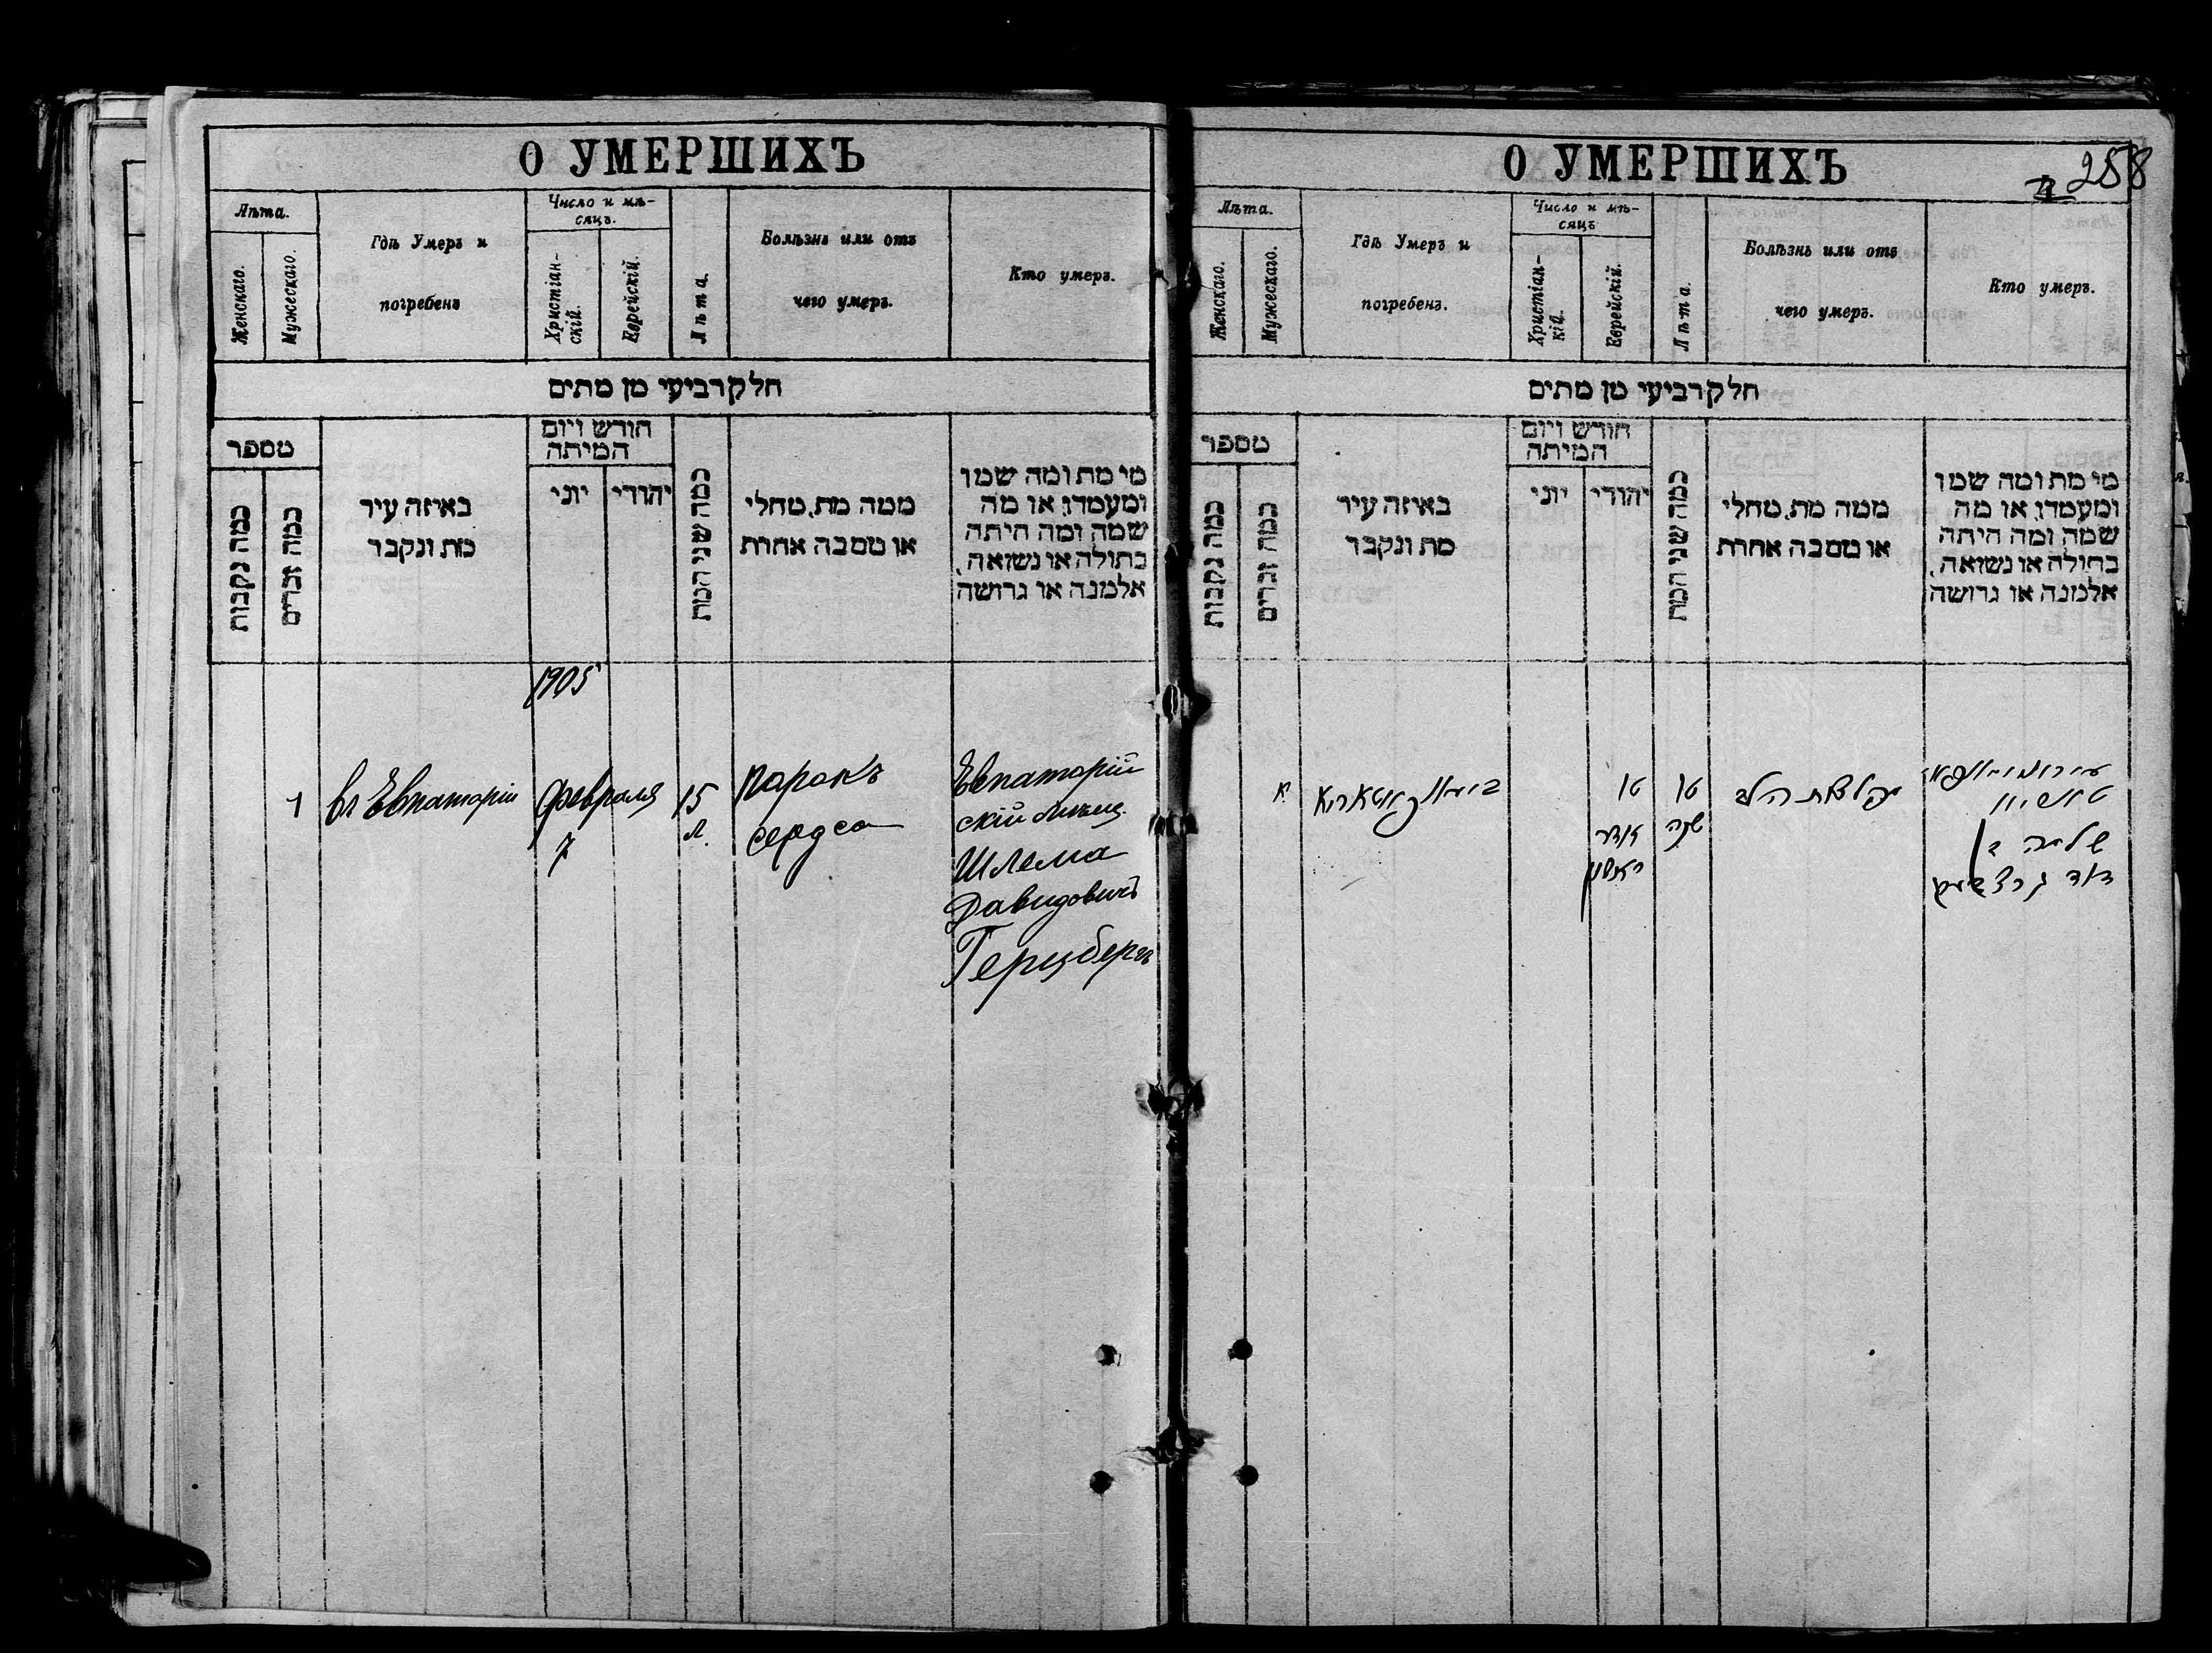 О УМЕРШИХЪ
Лѣта.
Женскаго.
Мужескаго.
Гдѣ Умеръ и
погребенъ
Число и мѣ-
сяцъ.
Христіан-
скій.
Еврейскій.
Лѣта.
Болѣзнь или отъ
чего умеръ.
Кто умеръ.
חלק רביעי מן מתים
מספר
כמה נקבות
כמה זכרים
באיזה עיר
מת ונקבר
חודש ויום
המיתה
יוני
יהודי
כמה שני המת
ממה מת, מחלי
או מסבה אחרת
מי מת ומה שמו
ומעמדו, או מה
שמה ומה היתה
בתולה או נשואה,
אלמנה או גרושה
1905
1
въ Евпаторіи
Февраля
7
15
л.
Порокъ
сердса
Евпаторій
скій мѣщ.
Шлема
Давидовичъ
Герцбергъ
О УМЕРШИХЪ
258
Лѣта.
Женскаго.
Мужескаго.
Гдѣ Умеръ и
погребенъ.
Число и мѣ-
сяцъ
Христіан-
кій.
Еврейскій.
Лѣта.
Болѣзнь или отъ
чего умеръ.
Кто умеръ.
חלק רביעי מן מתים
מספר
כמה נקבות
כמה זכרים
באיזה עיר
מת ונקבר
חודש ויום
המיתה
יוני
יהודי
כמה שני המת
ממה מת, מחלי
או מסבה אחרת
מי מת ומה שמו
ומעמדו, או מה
שמה ומה היתה
בתולה או נשואה,
אלמנה או גרושה
א
טו
אדר
ראשון
טו
שנה
הלב
שלמה ב
דוד גרצבערג